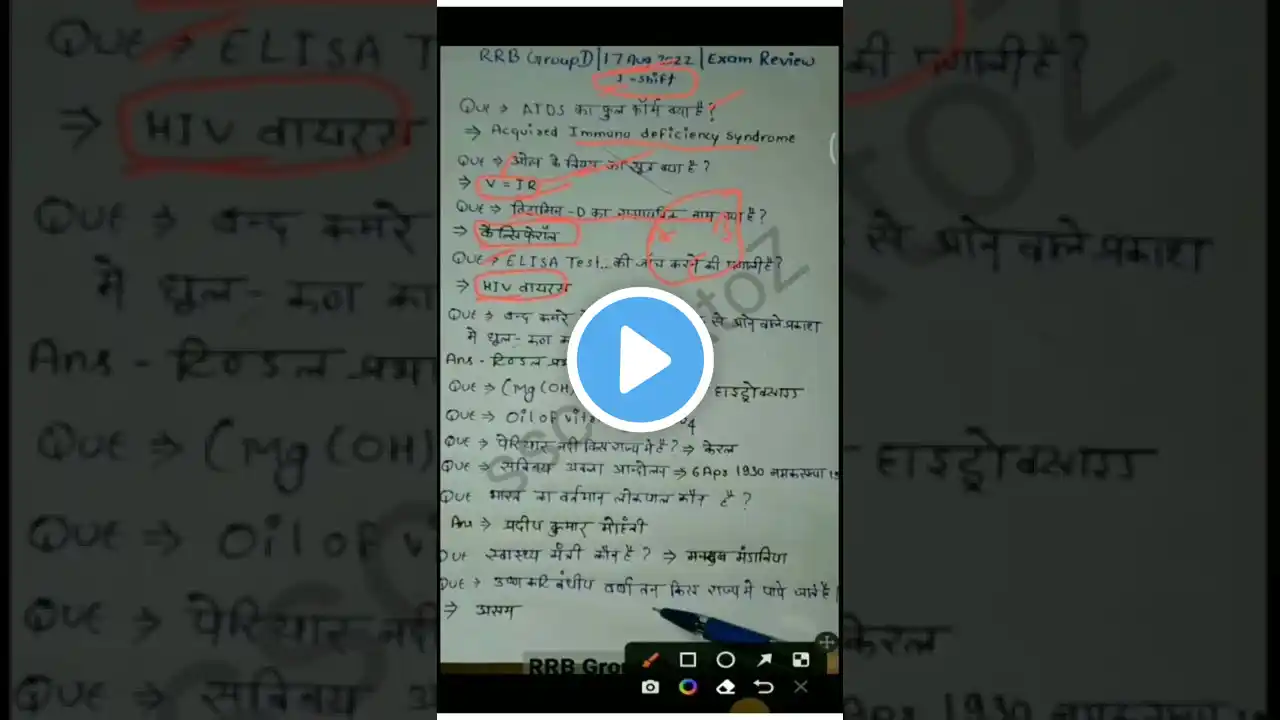 RRB GroupD | 17 Aug 2022 | Exam Review
I-shift
Que ⇒ AIDS का फुल फॉर्म क्या है?
⇒ Acquired Immuno deficiency Syndrome
Que ⇒ ओम के नियम का सूत्र क्या है?
⇒ V = IR
Que ⇒ विटामिन -D का रासायनिक नाम क्या है?
⇒ कैल्सिफेरॉल
Que ⇒ ELISA Test.. की जांच करने की प्रणाली है?
⇒ HIV वायरस
Que ⇒ बन्द कमरे से आने वाले प्रकाश
मे धूल - कण
Ans - टिण्डल
Que ⇒ (Mg(OH) हाइड्रोक्साइड
Que ⇒ Oil of vit 4
Que ⇒ पेरियार नदी किस राज्य मे है? ⇒ केरल
Que ⇒ सविनय अवज्ञा आन्दोलन ⇒ 6 Apr 1930
Que भारत का वर्तमान लोकपाल कौन है?
Ans ⇒ प्रदीप कुमार मोहंती
Que स्वास्थ्य मंत्री कौन है? ⇒ मनसुख मंडाविया
Que ⇒ उष्ण कटिबंधीय वर्षा वन किस राज्य मे पाये जाते है
⇒ असम
RRB Gro
sscattoz